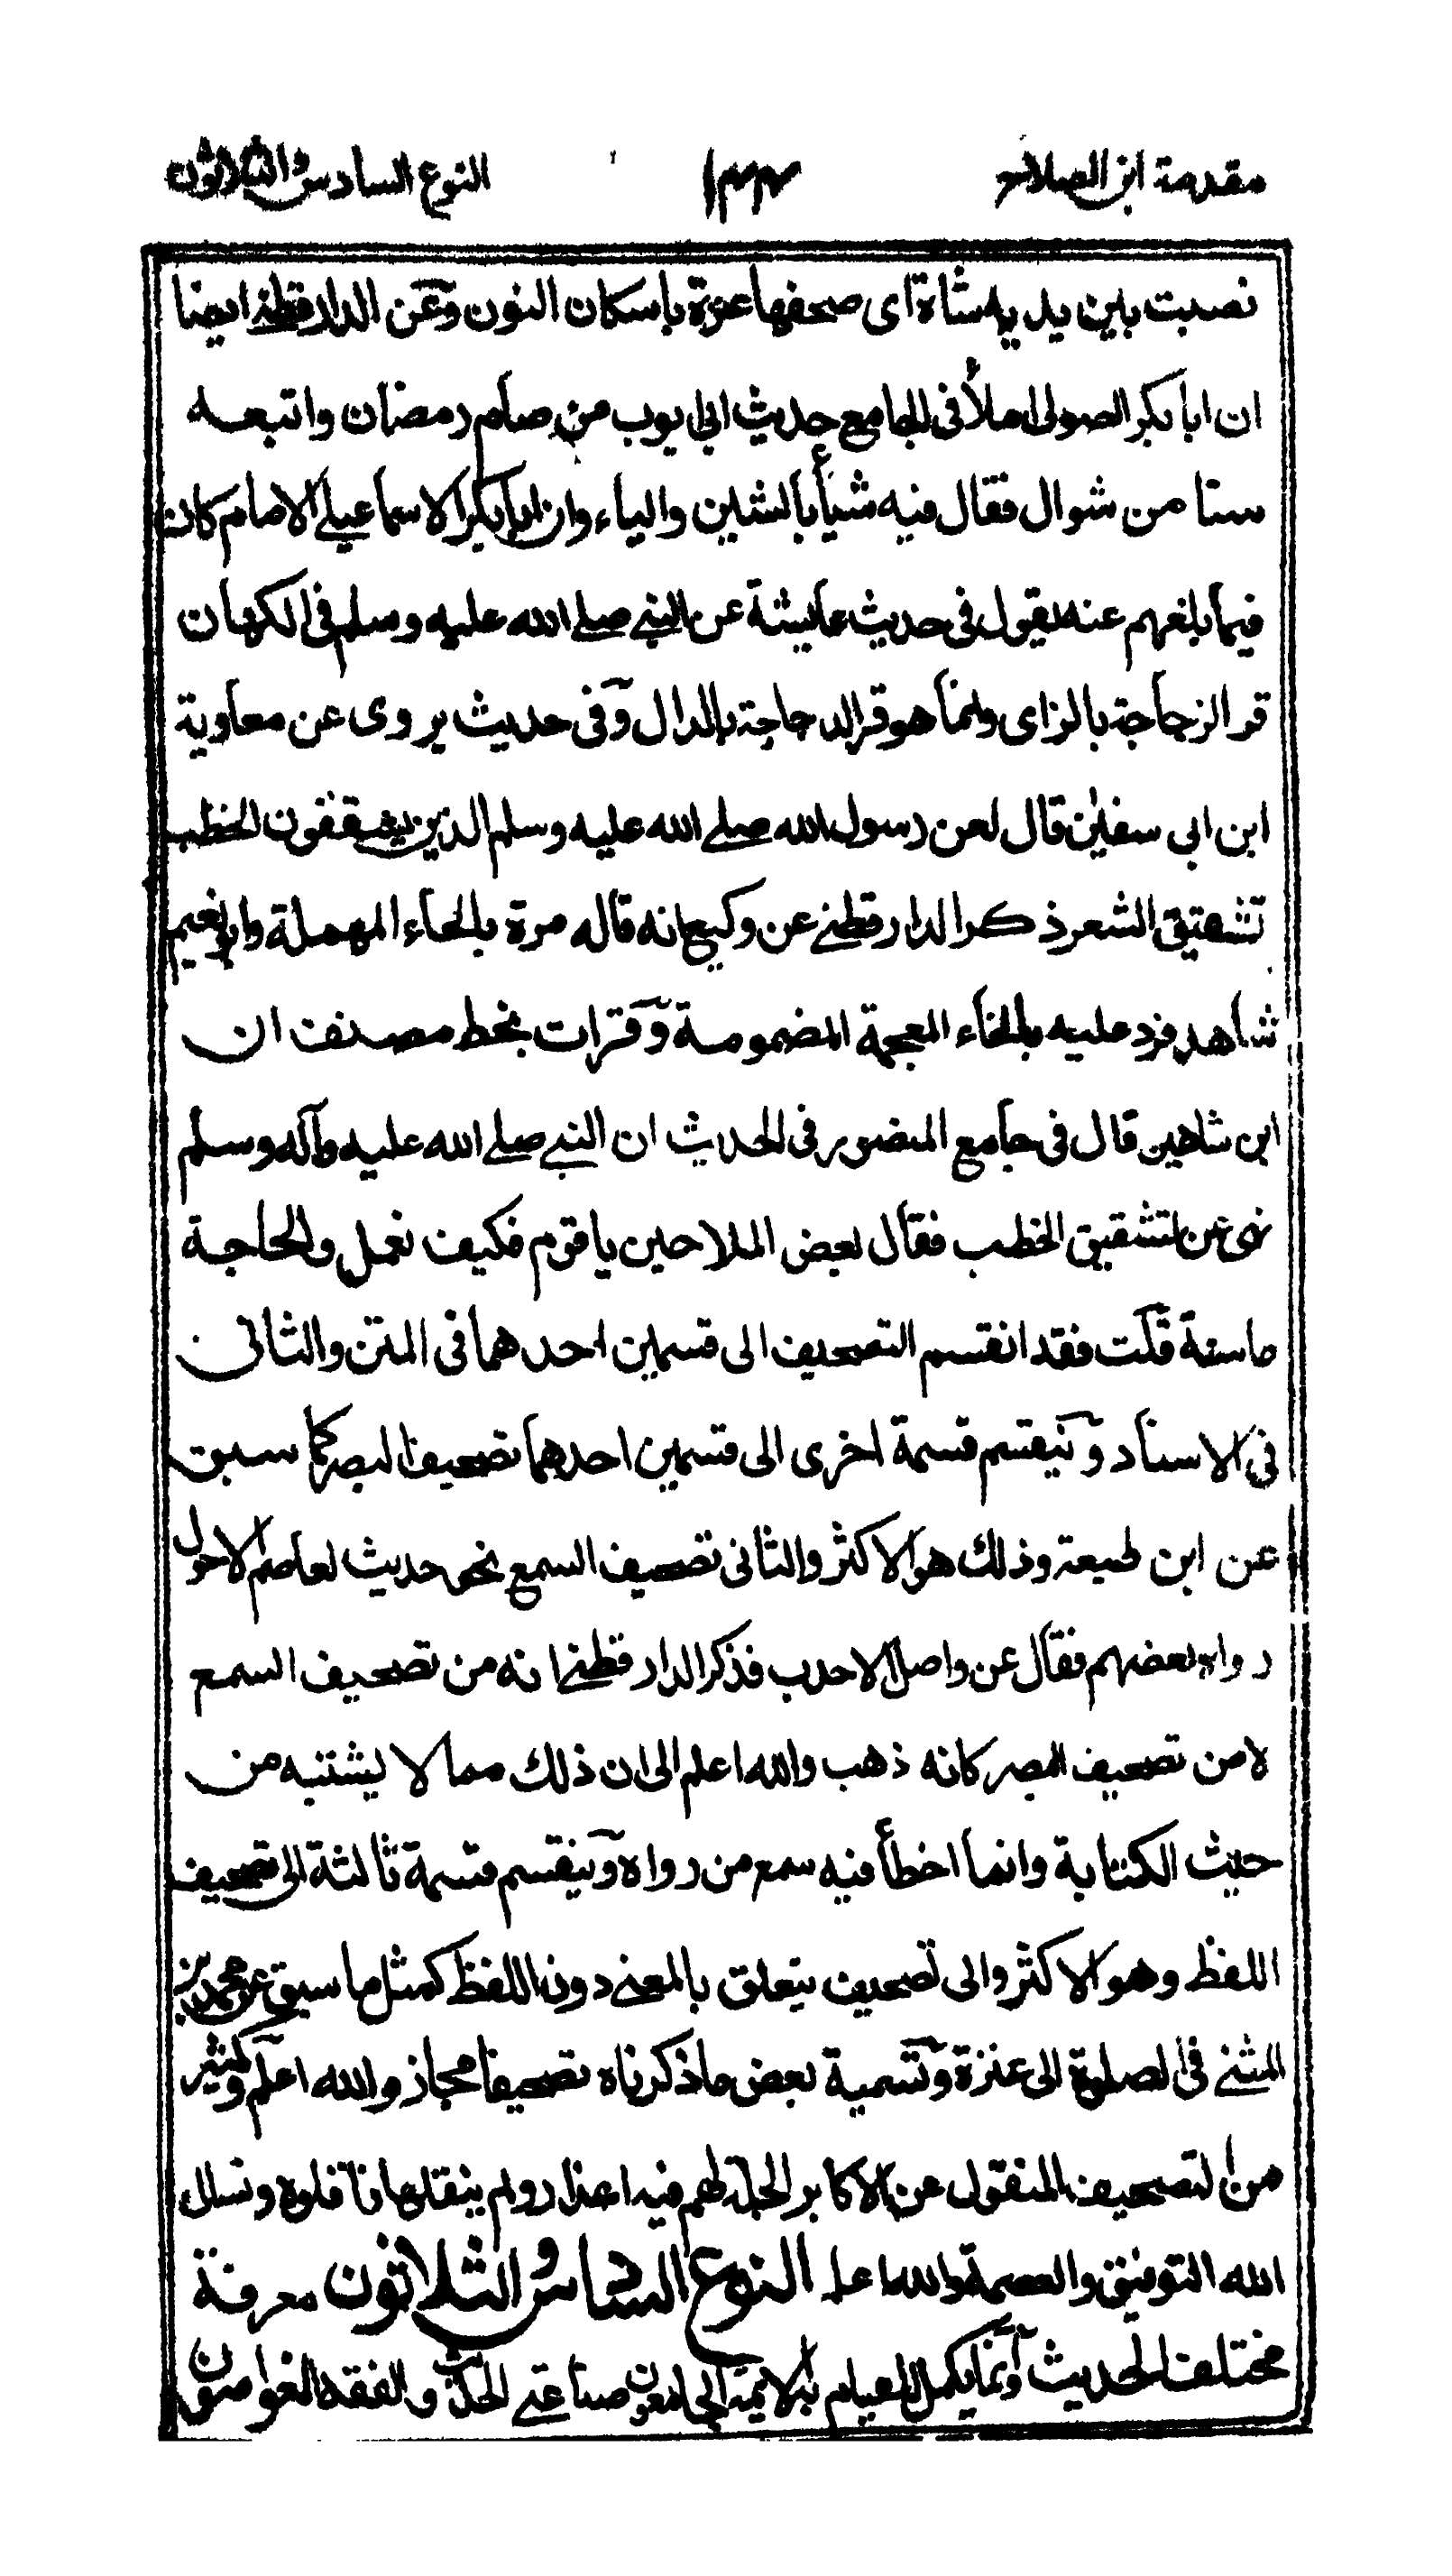 مقدمة ابن الصلاح ١٤٤ النوع السادس والثلاثون
نصبت بين يديه شاة اى صحفها عنزة باسكان النون وعن الدارقطنے ايضا
ان ابا بكر الصولى املأ فى الجامع حديث ابى ايوب من صام رمضان واتبعه
ستا من شوال فقال فيه شيأ بالشين والياء وان ابا بكر الاسماعيلے الامام كان
فيما بلغهم عنه يقول فى حديث عايشة عن النبے صلے الله عليه وسلم فى الكهان
قر الزجاجة بالزاى وانما هو قر الدجاجة بالدال وفى حديث يروى عن معاوية
ابن ابى سفين قال لعن رسول الله صلے الله عليه وسلم الذين يشققون الخطب
تشقيق الشعر ذكر الدارقطنے عن وكيع انه قاله مرة بالحاء المهملة وابو نعيم
شاهد فرد عليه بالخاء المعجمة المضمومة وقرات بخط مصنف ان
ابن شاهين قال فى جامع المنصور فى الحديث ان النبے صلے الله عليه وآله وسلم
نهى عن تشقيق الخطب فقال بعض الملاحين يا قوم فكيف نعمل والحاجة
ماسة قلت فقد انقسم التصحيف الى قسمين احدهما فى المتن والثانى
فى الاسناد وينقسم قسمة اخرى الى قسمين احدهما تصحيف البصر كما سبق
عن ابن لهيعة وذلك هو الاكثر والثانى تصحيف السمع نحو حديث لعاصم الاحول
رواه بعضهم فقال عن واصل الاحدب فذكر الدارقطنے انه من تصحيف السمع
لا من تصحيف البصر كانه ذهب والله اعلم الى ان ذلك مما لا يشتبه من
حيث الكتابة وانما اخطأ فيه سمع من رواه وينقسم قسمة ثالثة الى تصحيف
اللفظ وهو الاكثر والى تصحيف يتعلق بالمعنے دون اللفظ كمثل ما سبق عن محمد بن
المثنے فى الصلوة الى عنزة وتسمية بعض ما ذكرناه تصحيفا مجاز والله اعلم وكثير
من التصحيف المنقول عن الاكابر الجلة لهم فيه اعذار ولم ينقلها ناقلوه ونسال
الله التوفيق والعصمة والله اعلم النوع السادس والثلاثون معرفة
مختلف الحديث وانما يكمل للقيام به الايمة الجامعون صناعتے الحديث والفقه الغواصون